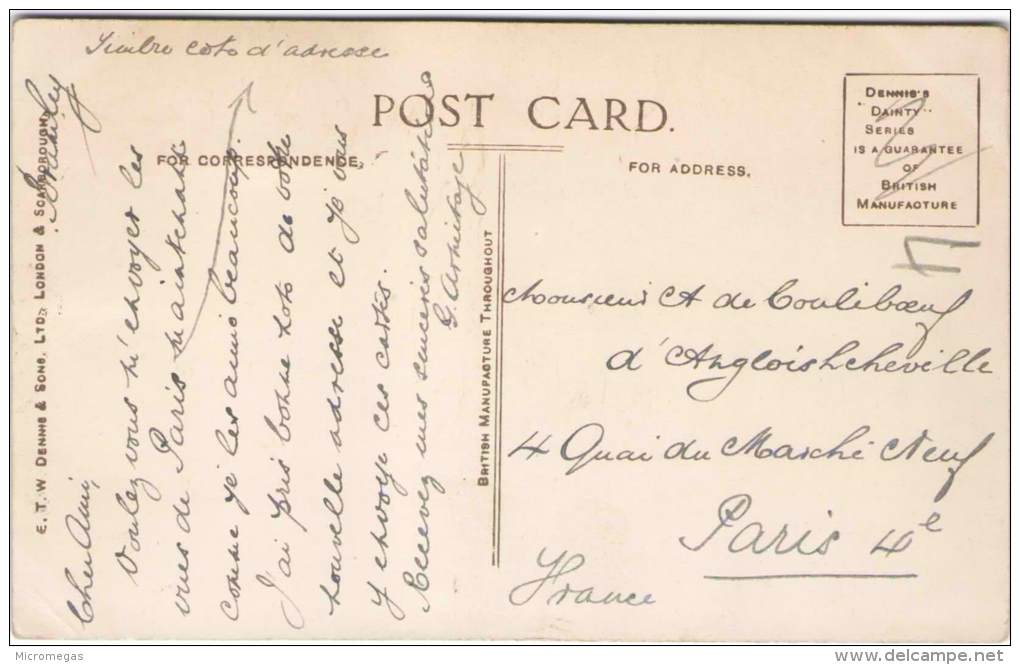 Timbre coto d'adresse
POST CARD.
FOR CORRESPONDENCE.
FOR ADDRESS.
DENNIS'S
"DAINTY"
SERIES
IS A GUARANTEE
OF
BRITISH
MANUFACTURE
E. T. W. DENNIS & SONS, LTD., LONDON & SCARBOROUGH.
BRITISH MANUFACTURE THROUGHOUT
Cher Ami,
Voulez vous m'envoyer les
vues de Paris maintenant
comme je les aime beaucoup.
J'ai pris bonne note de votre
nouvelle adresse et je vous
y envoye ces cartes.
Recevez mes sincères salutations
G. Armitage
Monsieur A de Coulibœuf
d'Angloishcheville
4 Quai du Marché Neuf
Paris 4e
France
Micromegas
www.delcampe.net